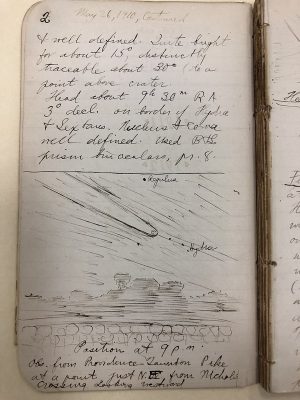 2
May 26, 1910, Continued
& well defined. Quite bright
for about 15°, distinctly
traceable about 30° to a
point above crater.
Head about 9h 30m RA
3° decl. on border of Hydra
& Sextans. Nucleus & Coma
well defined. Used B&L
prism binoculars, pr. 8.
Regulus
Hydra
Position at 9 p m
Obs. from Providence-Taunton Pike
at a point just N. from Nichols
Crossing looking westward